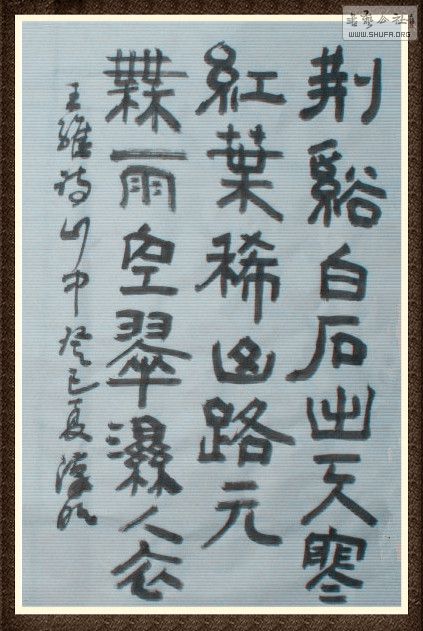 荊谿白石出天寒
紅葉稀山路元
無雨空翠濕人衣
王維詩山中癸巳夏
公社
WWW.SHUFA.ORG